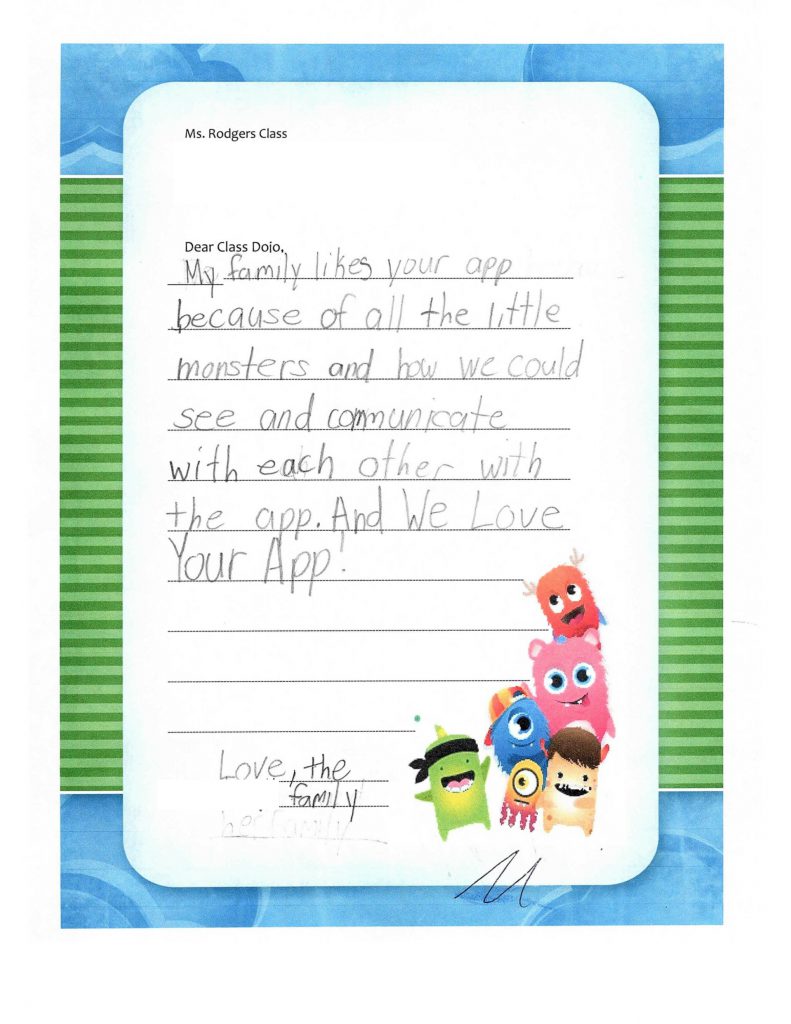 Ms. Rodgers Class
Dear Class Dojo,
My family likes your app
because of all the little
monsters and how we could
see and communicate
with each other with
the app. And We Love
Your App!
Love, the
family
family